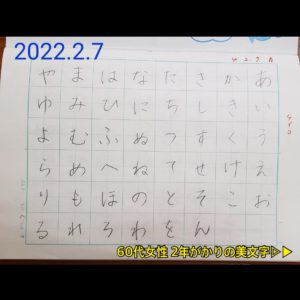 2022.2.7
あいうえお
かきくけこ
さしすせそ
たちつてと
なにぬねの
はひふへほ
まみむめも
やゆよらり
るれろわをん
60代女性 2年がかりの美文字▷▶